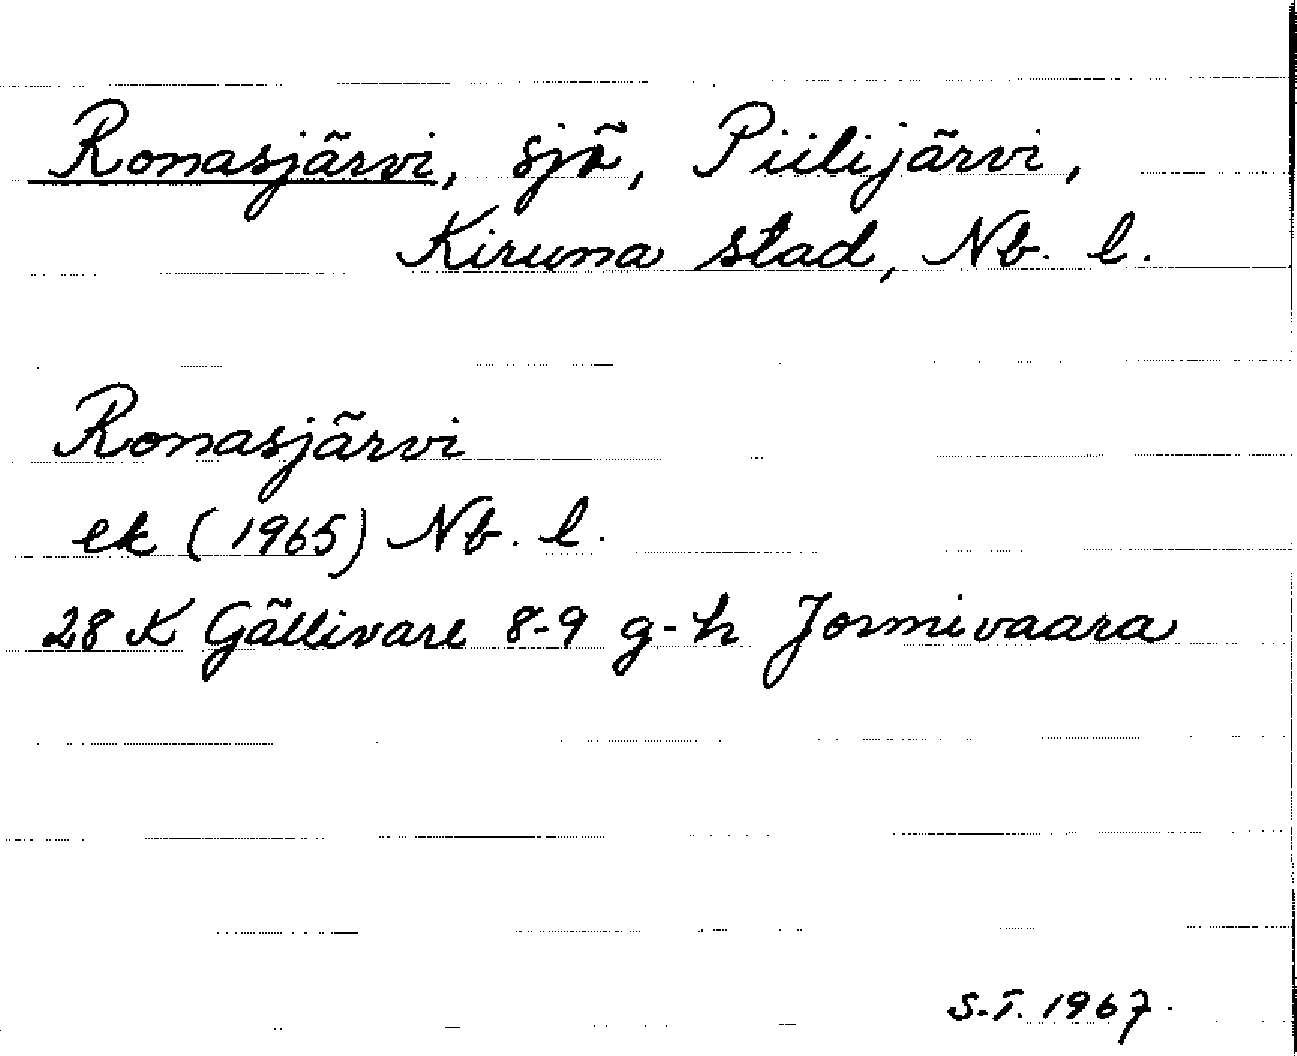 Ronasjärvi, sjö, Piilijärvi,
Kiruna stad, Nb. l.
Ronasjärvi
ek (1965) Nb. l.
28 K Gällivare 8-9 g-h Jormivaara
S.T. 1967.